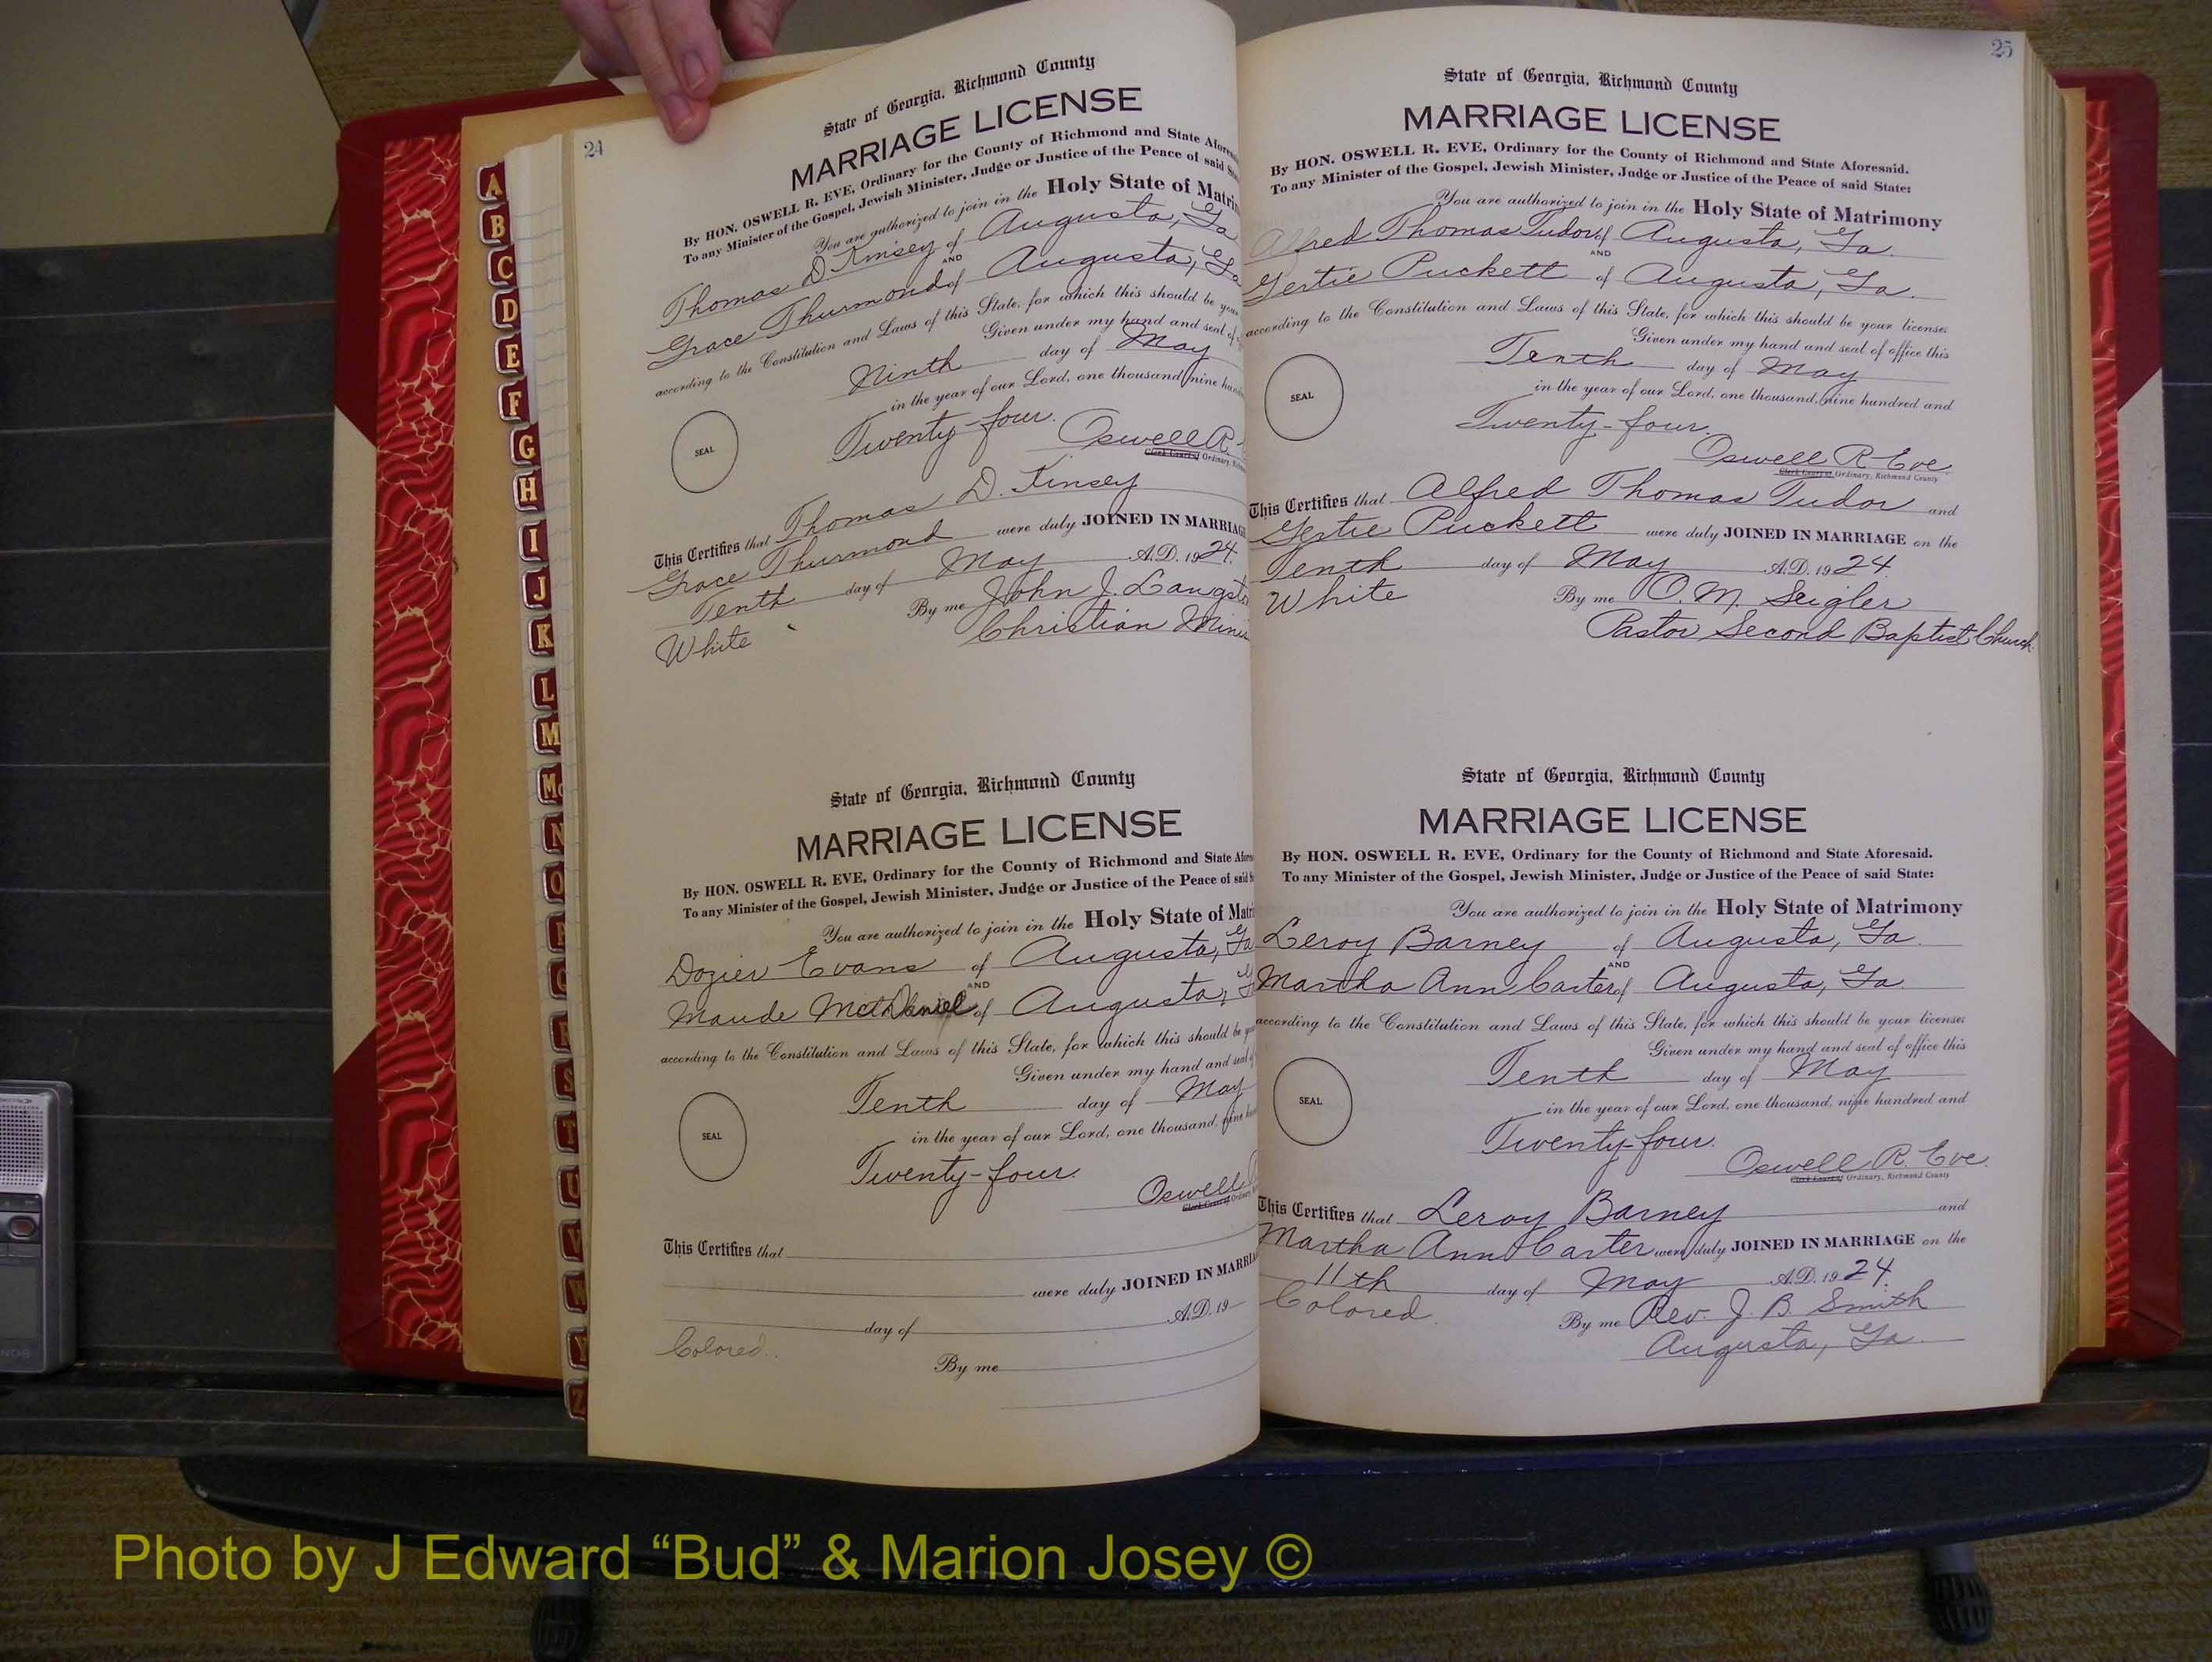 24
State of Georgia, Richmond County
MARRIAGE LICENSE
By HON. OSWELL R. EVE, Ordinary for the County of Richmond and State
To any Minister of the Gospel, Jewish Minister, Judge or Justice of the Peace of said
You are authorized to join in the Holy State of
Thomas D. Kinsey of Augusta, Ga
AND
Grace Thurmond of Augusta, Ga
according to the Constitution and Laws of this State, for which this should be
Given under my hand and seal of
Ninth day of May
in the year of our Lord, one thousand, nine
Twenty-four.
SEAL
Oswell R.
Clerk Court of Ordinary,
This Certifies that Thomas D. Kinsey
Grace Thurmond were duly JOINED IN MARRIAGE
Tenth day of May A.D. 1924.
White By me John J.
Christian
State of Georgia, Richmond County
MARRIAGE LICENSE
By HON. OSWELL R. EVE, Ordinary for the County of Richmond and State
To any Minister of the Gospel, Jewish Minister, Judge or Justice of the Peace of said
You are authorized to join in the Holy State of
Dozier Evans of Augusta, Ga
AND
Maude of Augusta,
according to the Constitution and Laws of this State, for which this should be
Given under my hand and seal
Tenth day of May
in the year of our Lord, one thousand,
SEAL
Twenty-four.
Oswell
Clerk Court of
This Certifies that
were duly JOINED IN
day of A.D. 19
Colored.
By me
25
State of Georgia, Richmond County
MARRIAGE LICENSE
By HON. OSWELL R. EVE, Ordinary for the County of Richmond and State Aforesaid.
To any Minister of the Gospel, Jewish Minister, Judge or Justice of the Peace of said State:
You are authorized to join in the Holy State of Matrimony
Alfred Thomas Tudor of Augusta, Ga.
AND
Gertie Puckett of Augusta, Ga.
according to the Constitution and Laws of this State, for which this should be your license.
Given under my hand and seal of office this
Tenth day of May
in the year of our Lord, one thousand, nine hundred and
SEAL
Twenty-four.
Oswell R. Eve
Clerk Court of Ordinary, Richmond County
This Certifies that Alfred Thomas Tudor and
Gertie Puckett were duly JOINED IN MARRIAGE on the
Tenth day of May A.D. 1924.
White By me O. M. Seigler
Pastor Second Baptist Church.
State of Georgia, Richmond County
MARRIAGE LICENSE
By HON. OSWELL R. EVE, Ordinary for the County of Richmond and State Aforesaid.
To any Minister of the Gospel, Jewish Minister, Judge or Justice of the Peace of said State:
You are authorized to join in the Holy State of Matrimony
Leroy Barney of Augusta, Ga.
AND
Martha Ann Carter of Augusta, Ga.
according to the Constitution and Laws of this State, for which this should be your license.
Given under my hand and seal of office this
Tenth day of May
SEAL
in the year of our Lord, one thousand, nine hundred and
Twenty-four.
Oswell R. Eve.
Clerk Court of Ordinary, Richmond County
This Certifies that Leroy Barney and
Martha Ann Carter were duly JOINED IN MARRIAGE on the
11th day of May A.D. 1924.
Colored. By me Rev. J. B. Smith
Augusta, Ga.
A
B
C
D
E
F
G
H
I
J
K
L
M
Mc
N
O
P
Q
R
S
T
U
V
W
Y
Z
Photo by J Edward “Bud” & Marion Josey ©